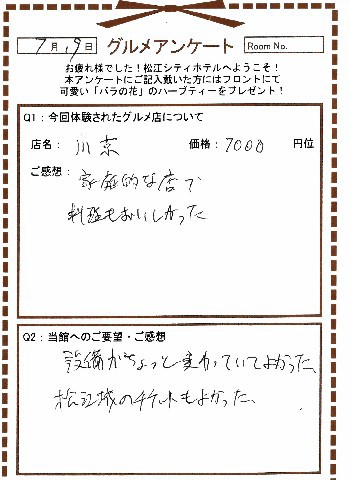 7月19日 グルメアンケート Room No.
お疲れ様でした！松江シティホテルへようこそ！
本アンケートにご記入戴いた方にはフロントにて
可愛い「バラの花」のハーブティーをプレゼント！
Q1：今回体験されたグルメ店について
店名： 川京 価格：7000 円位
ご感想： 家庭的な店で
料理もおいしかった
Q2：当館へのご要望・ご感想
設備がちょっと変わっていてよかった、
松江城のチケットもよかった、